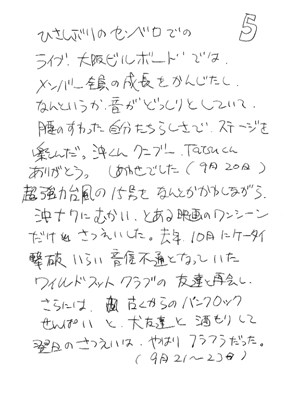 5
ひさしぶりのセンベロでの
ライブ、大阪ビルボードでは、
メンバー全員の成長をかんじたし、
なんというか、音がどっしりとしていて、
腰のすわった自分たちらしさで、ステージを
楽しんだ。沖くん クニブー Tatsuくん
ありがとう。しあわせでした(9月20日)
超強力台風の15号をなんとかかわしながら、
沖ナワにむかい、とある映画のワンシーン
だけ さつえいした。去年、10月にケータイ
撃破いらい音信不通となっていた
ワイルドフットクラブの友達と再会し、
さらには、古くからのパンクロック
せんぱいと、犬友達と酒もりして
翌日のさつえいは、やはりフラフラだった。
(9月21〜23日)